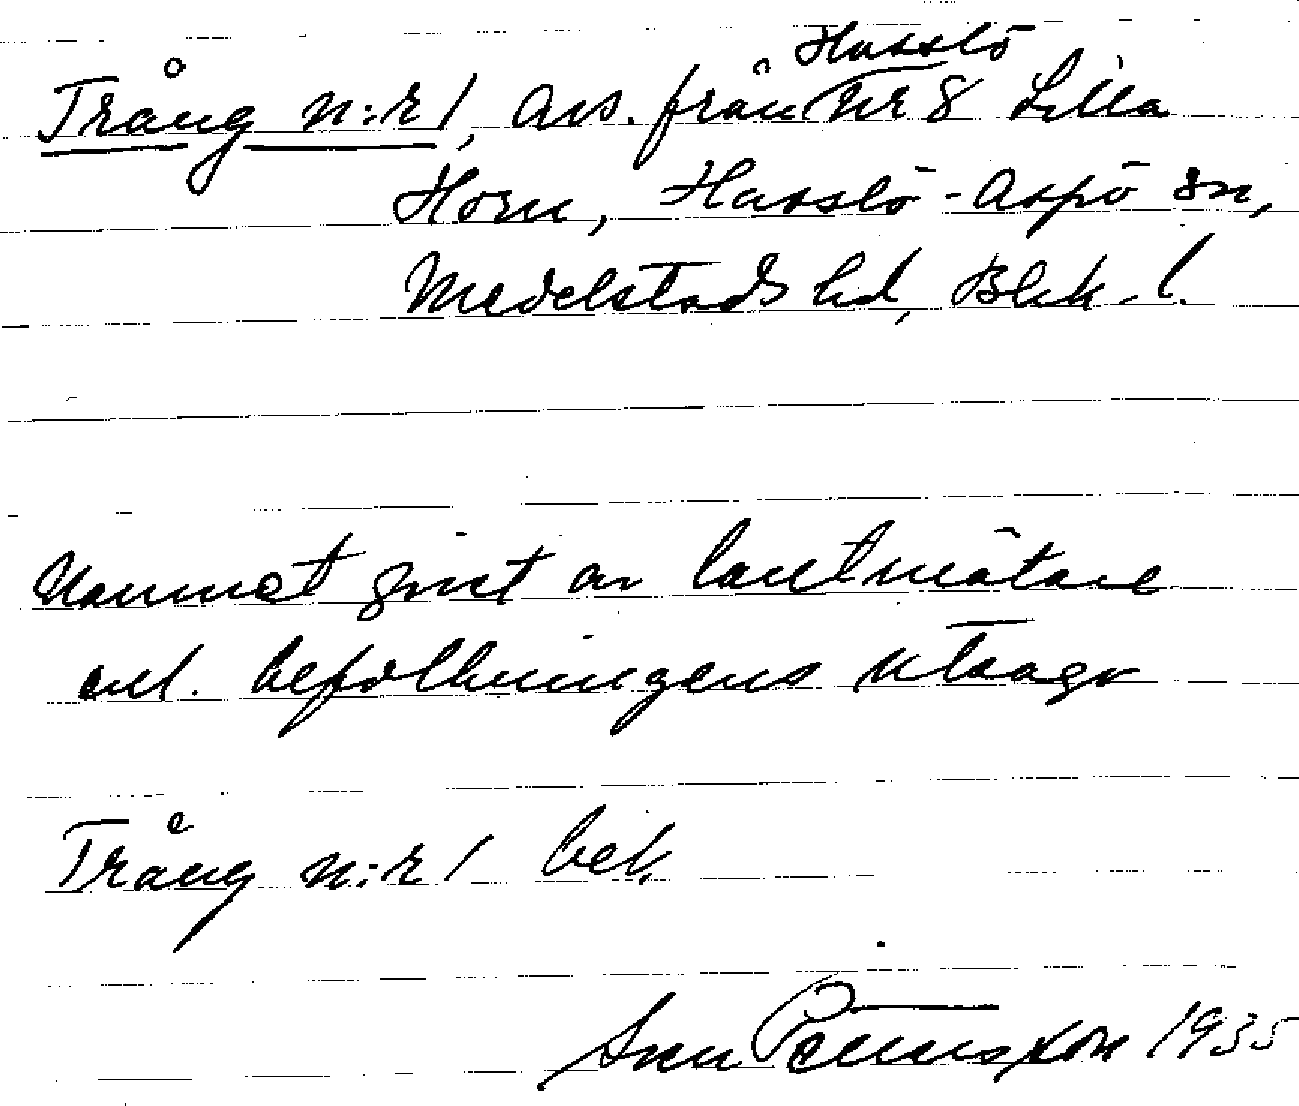 Hasslö
Trång n:r 1, avs. från Nr 8 Lilla
Horn, Hasslö-Aspö sn,
Medelstads hd, Blek. l.
Namnet givet av lantmätare
enl. befolkningens utsago
Trång n:r 1 bek.
Sven Pettersson 1935